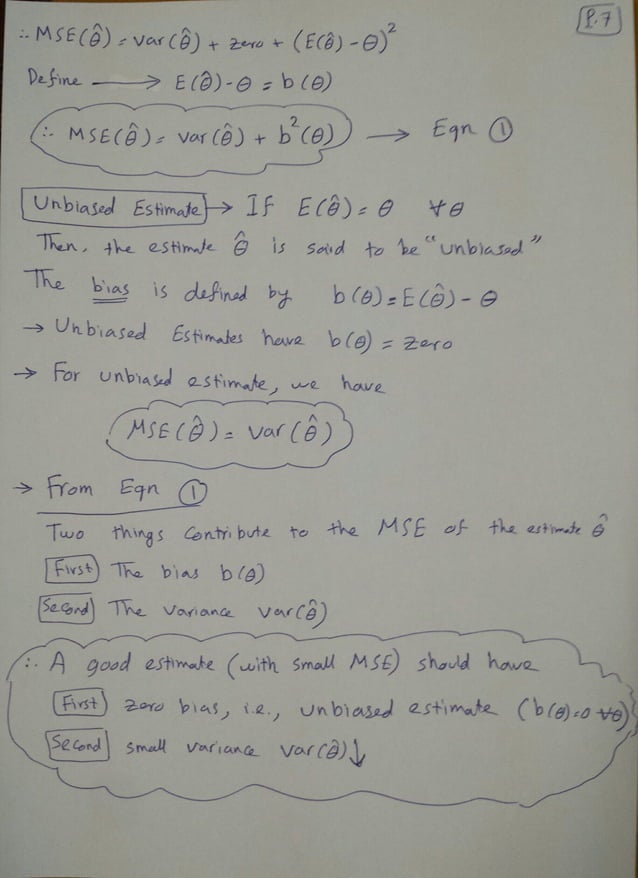 P.7
∴ MSE(θ̂) = var(θ̂) + zero + (E(θ̂) - θ)²
Define ⟶ E(θ̂) - θ = b(θ)
∴ MSE(θ̂) = var(θ̂) + b²(θ) → Eqn ①
Unbiased Estimate → If E(θ̂) = θ ∀θ
Then, the estimate θ̂ is said to be "unbiased"
The bias is defined by b(θ) = E(θ̂) - θ
→ Unbiased Estimates have b(θ) = zero
→ For unbiased estimate, we have
MSE(θ̂) = var(θ̂)
→ From Eqn ①
Two things contribute to the MSE of the estimate θ̂
First The bias b(θ)
Second The variance var(θ̂)
∴ A good estimate (with small MSE) should have
First zero bias, i.e., unbiased estimate (b(θ)=0 ∀θ)
Second small variance var(θ̂)↓